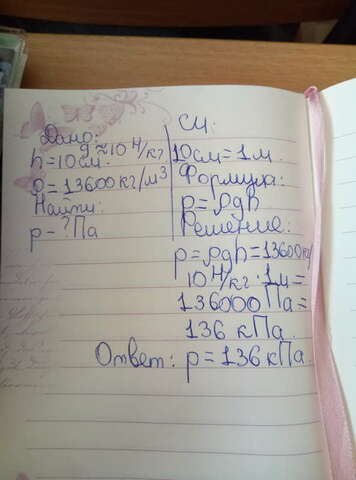 Дано:
g≈10 Н/кг
h=10см.
ρ=13600кг/м³
Найти:
p-?Па
СИ:
10см=1м.
Формула:
p=ρgh
Решение:
p=ρgh=13600кг/
10 Н/кг·1м=
136000Па=
136 кПа.
Ответ: p=136кПа.